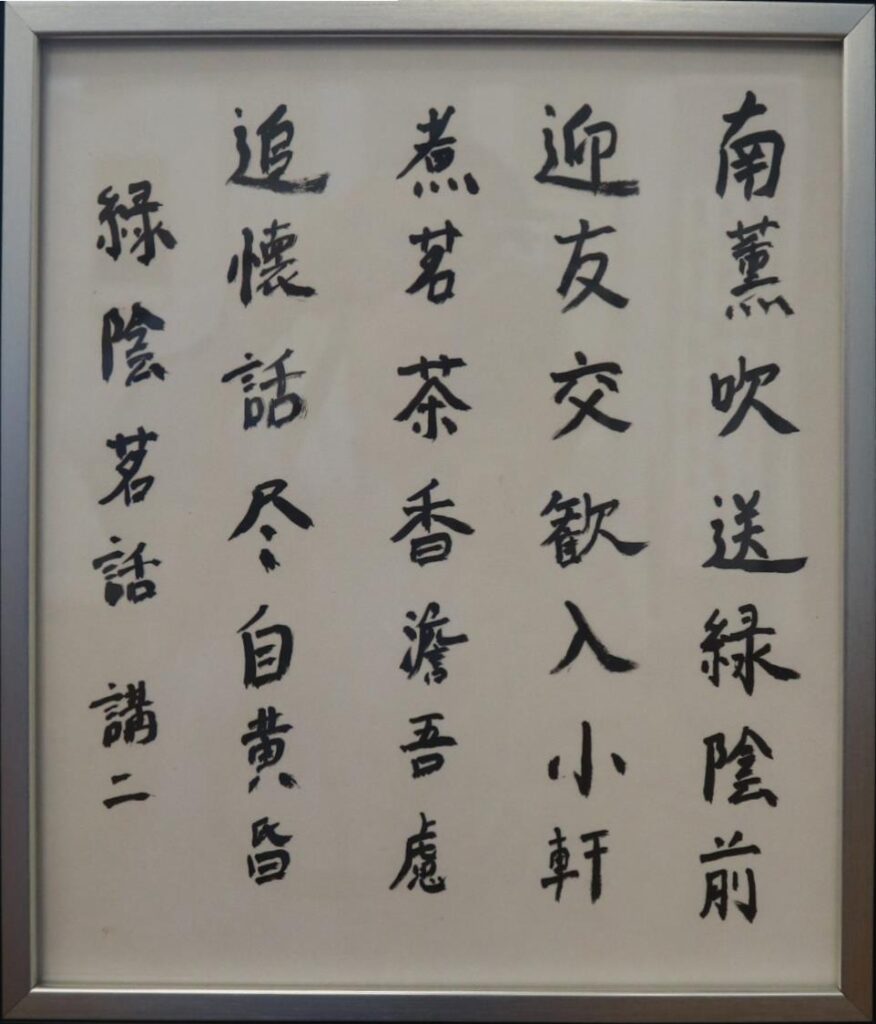 南薫吹送緑陰前
迎友交歓入小軒
煮茗茶香澹吾慮
追懐話尽自黄昏
緑陰茗話 講二